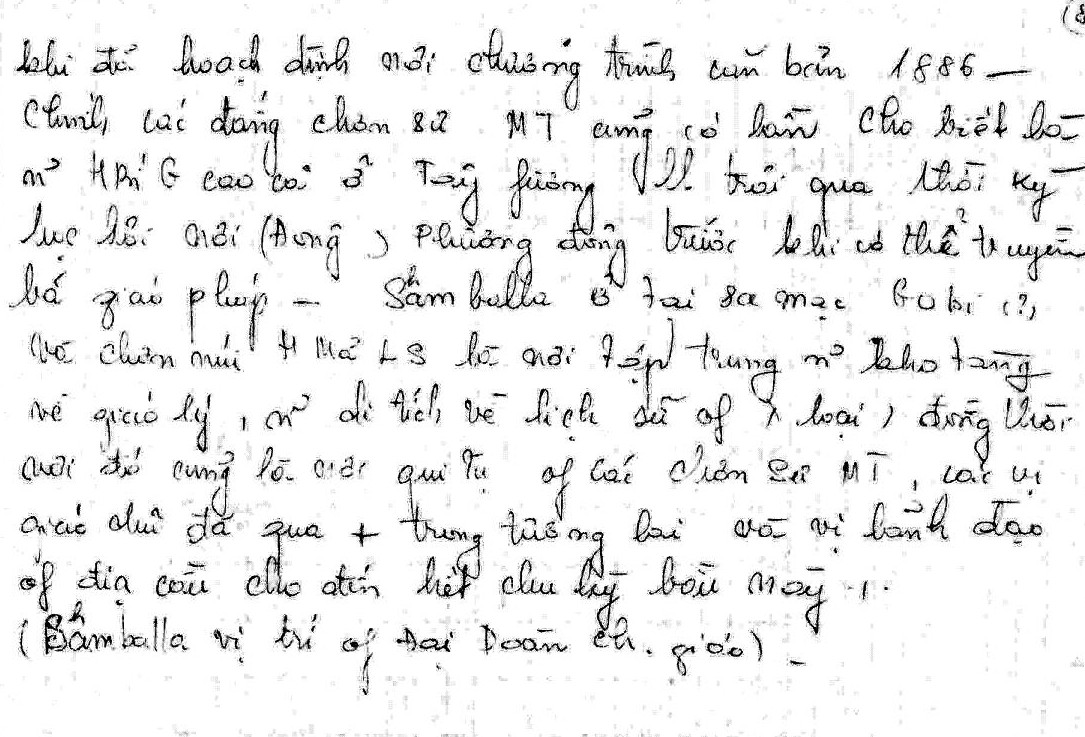 (8
khi đó hoạch định nơi chương trình căn bản 1886 —
Chính các đấng chơn sư MT cũng có lần cho biết là
n² HPh'G cao cả ở Tây phương trải qua thời kỳ
lục hồi nơi (Đông) Phương đông trước khi có thể truyền
bá giáo pháp — Shamballa ở tại sa mạc Gobi (?)
và chơn núi H Mã LS là nơi tập trung n² kho tàng
về giáo lý, n² di tích về lịch sử of loại) đồng thời
nơi đó cũng là nơi qui tụ of các chơn sư MT, các vị
giáo chủ đã qua + trong tương lai và vị lãnh đạo
of địa cầu cho đến hết chu kỳ bầu này.
(Shamballa vị trí of Đại Đoàn Ch. giáo) _